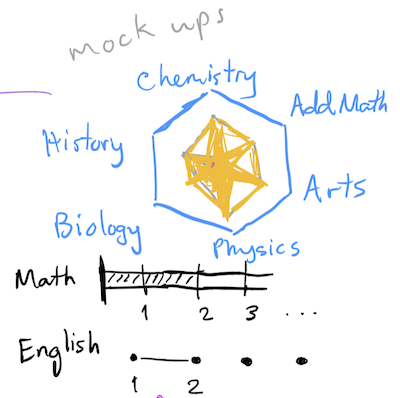 mock ups
Chemistry
Add Math
History
Arts
Biology
Physics
Math
1 2 3 ...
English
1 2